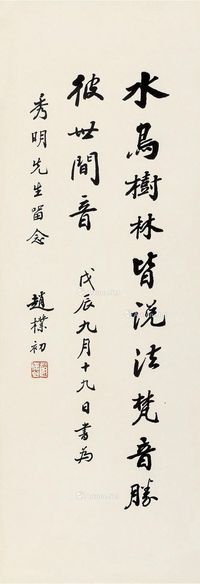 水鸟樹林皆说法梵音勝
彼世間音
戊辰九月十九日书為
秀明先生留念
趙樸初